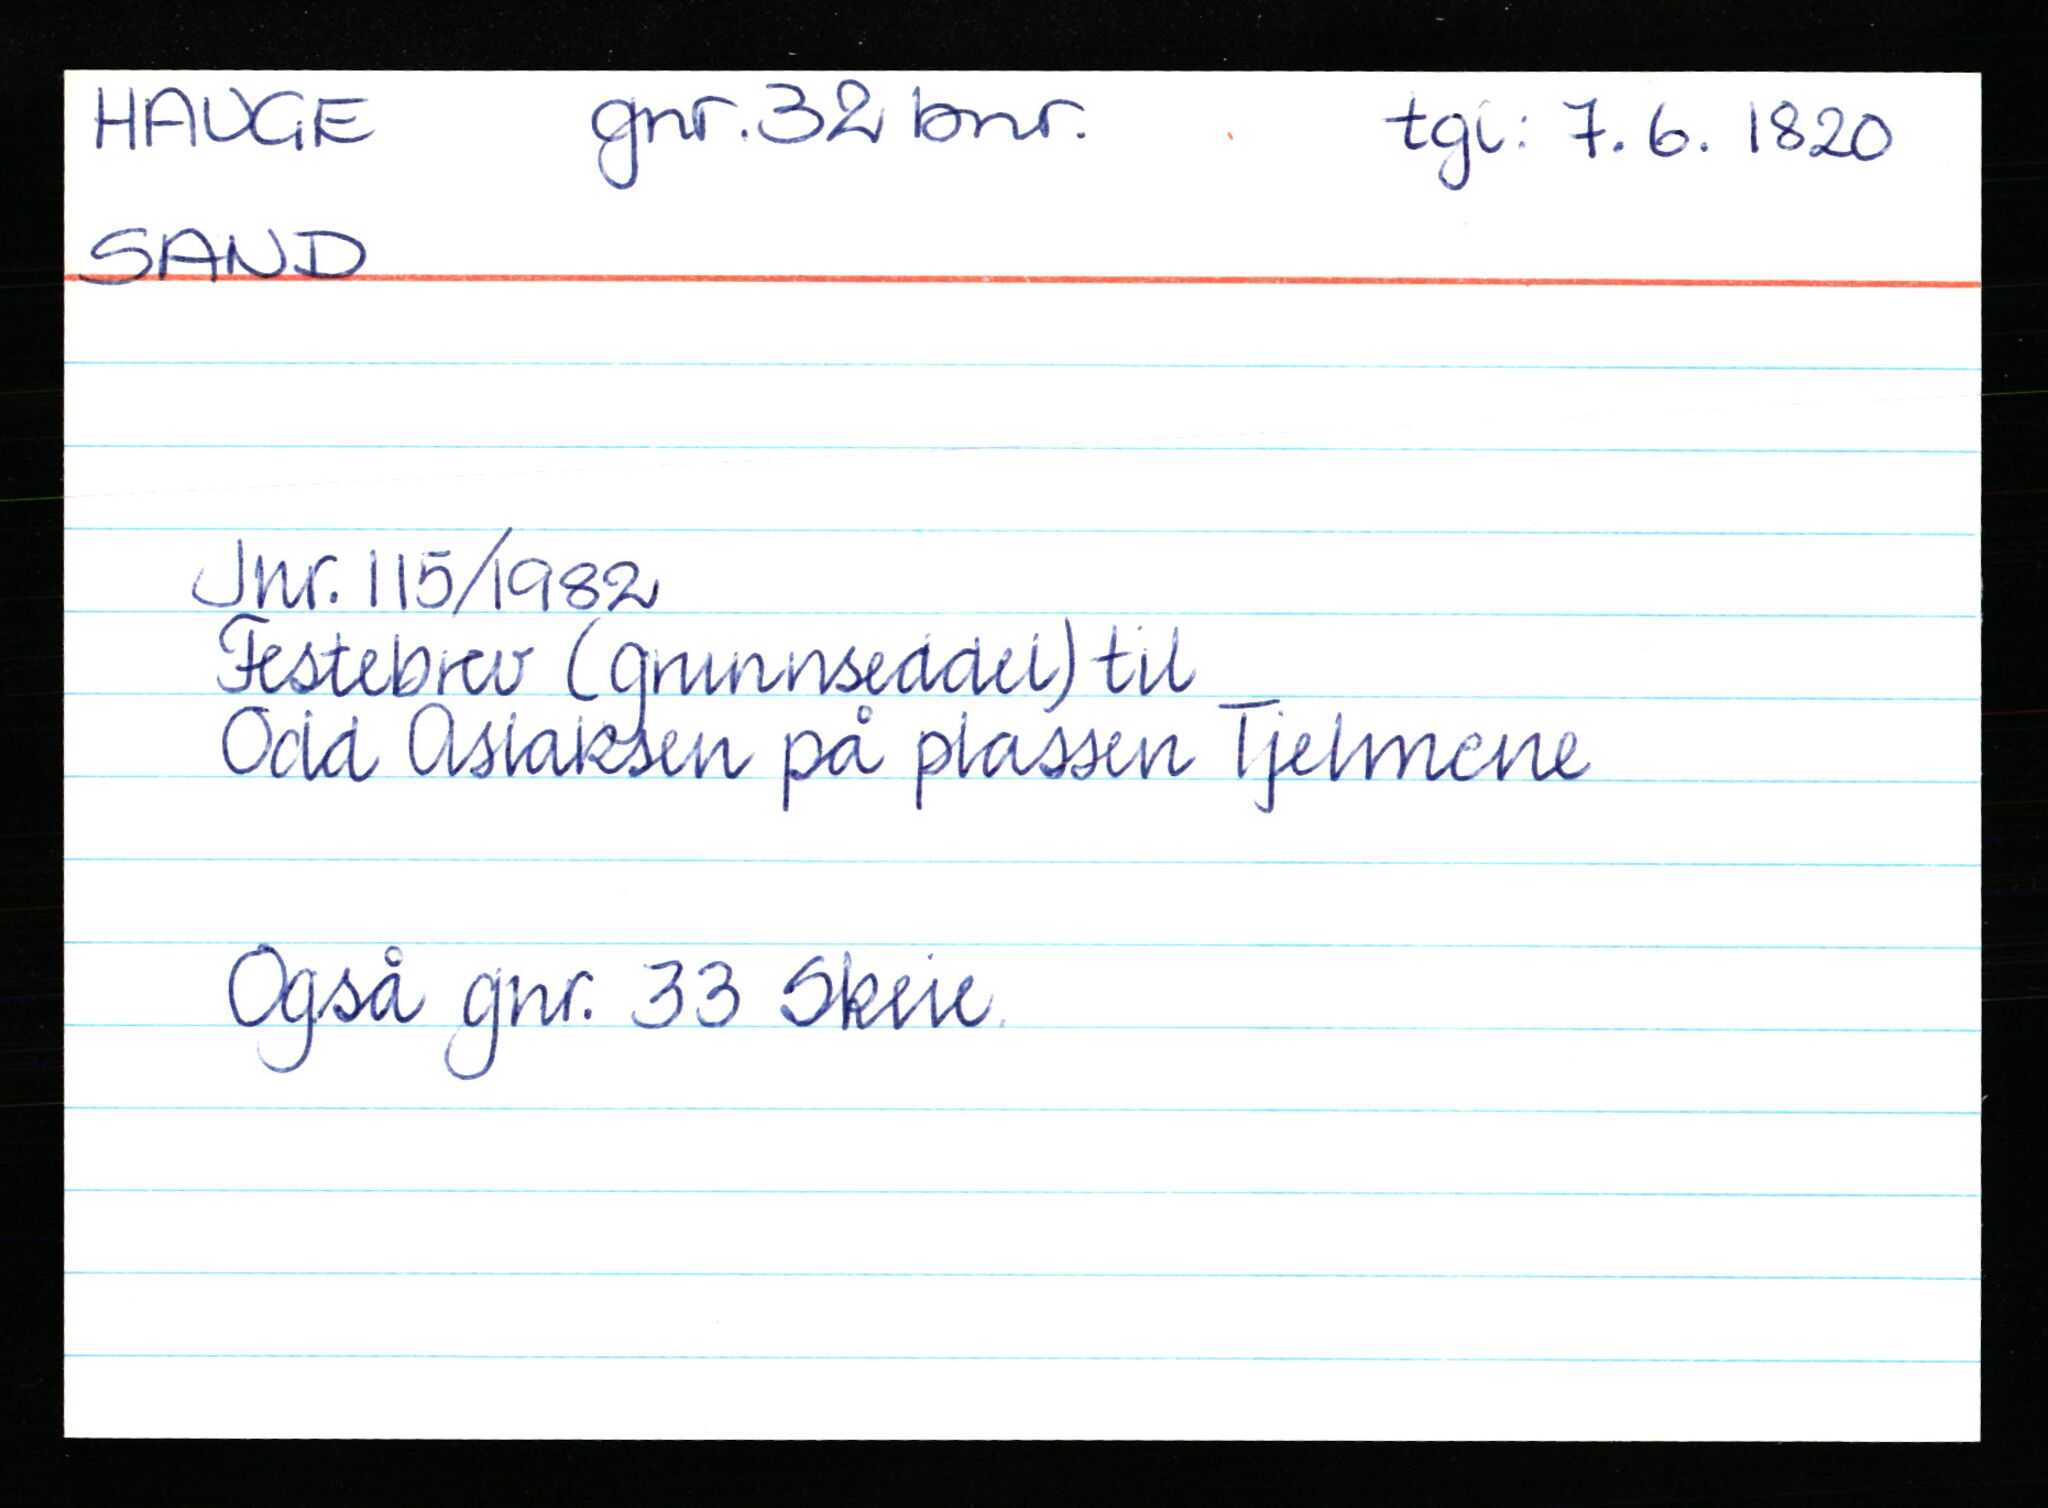 HAUGE gnr. 32 bnr. tgl: 7. 6. 1820
SAND
Jnr. 115/1982
Festebrev (grunnseddel) til
Odd Aslaksen på plassen Tjelmene
Også gnr. 33 Skeie.